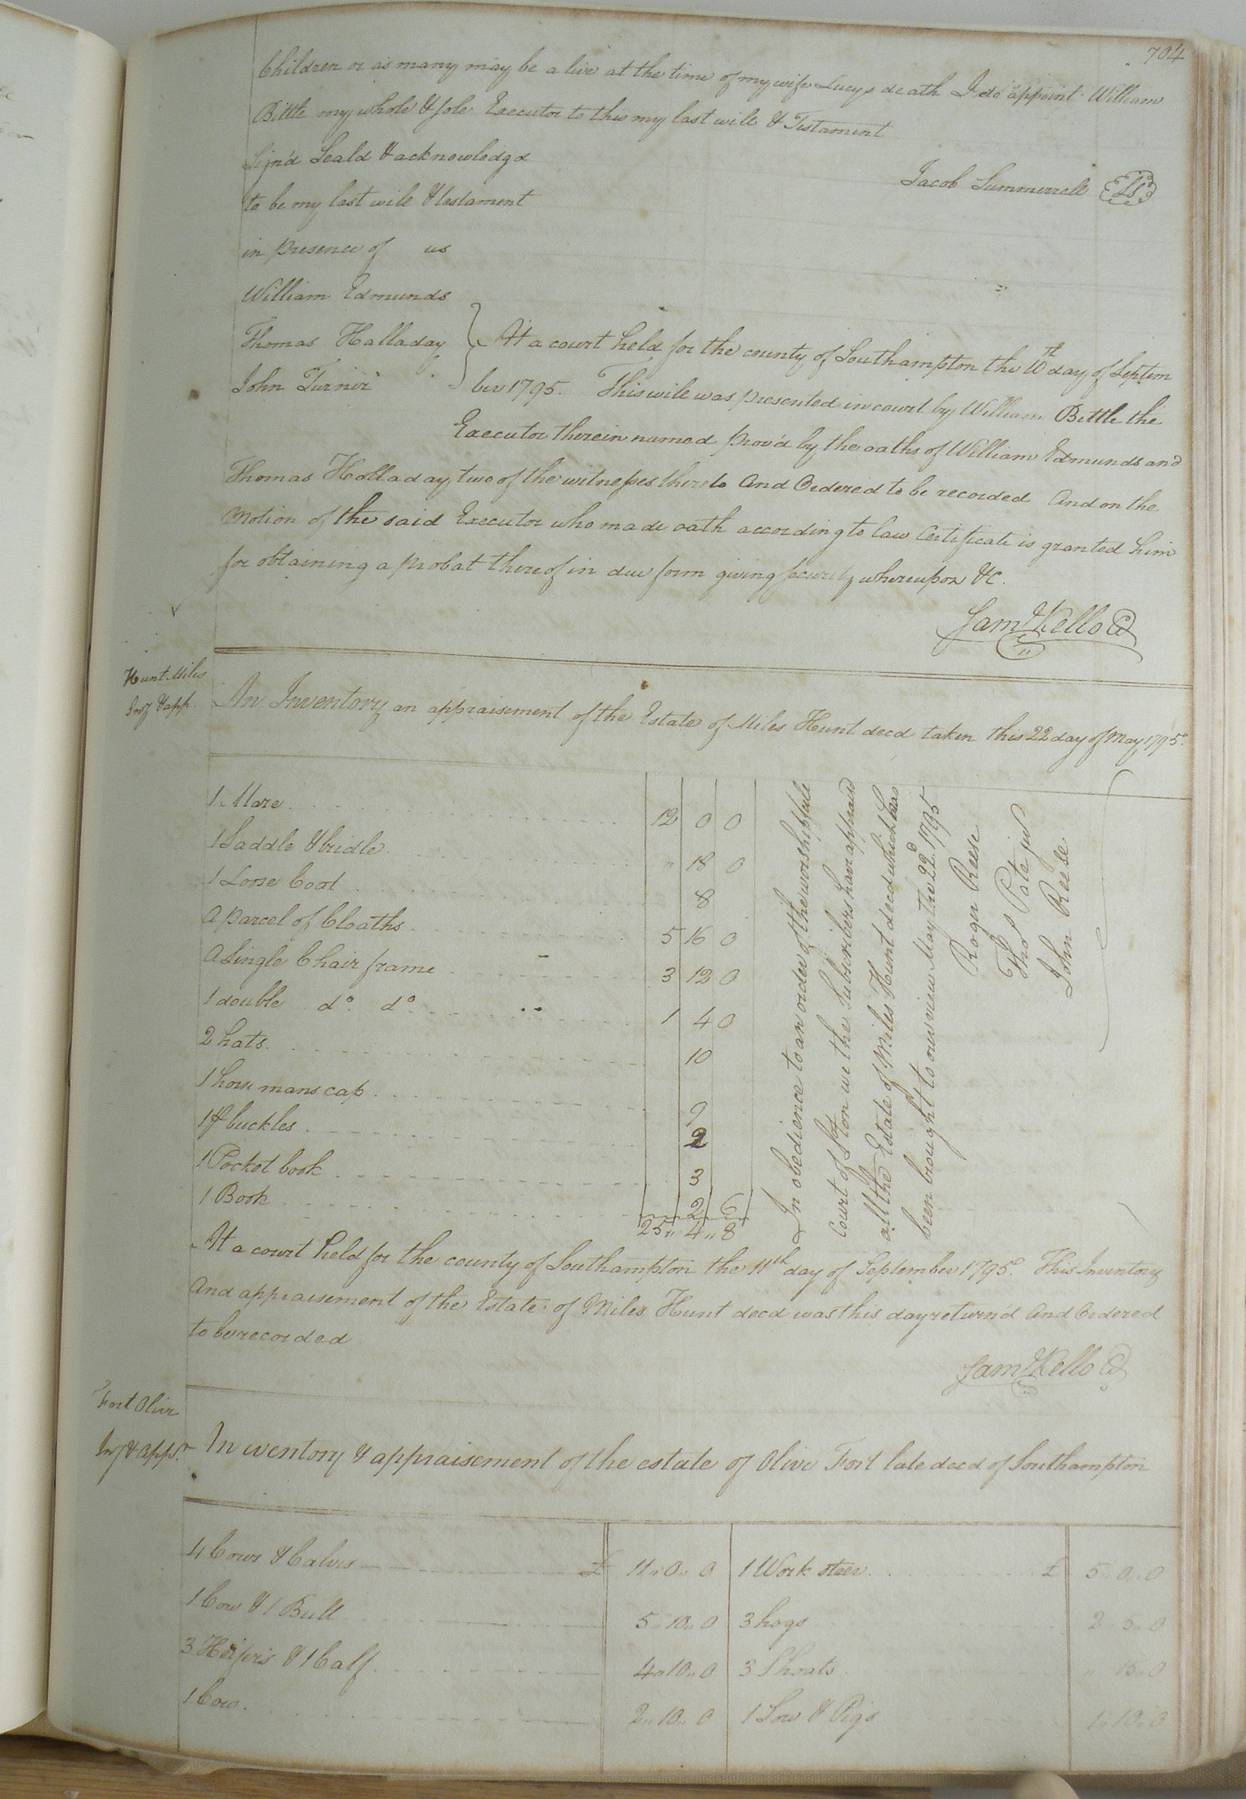 704
Children or as many may be alive at the time of my wife Lucys death I do appoint William
Bittle my whole & sole Executor to this my last will & Testament
Sign'd Seald & acknowledgd
Jacob Summerrell LS
to be my last will & testament
in presence of us
William Edmunds
Thomas Halladay
John Turner
At a court held for the county of Southampton the 10th day of Septem
ber 1795. This will was presented in court by William Bittle the
Executor therein named prov'd by the oaths of William Edmunds and
Thomas Holladay two of the witnesses thereto And Ordered to be recorded And on the
Motion of the said Executor who made oath according to law Certificate is granted him
for obtaining a probat thereof in due form giving security whereupon &c.
Saml Kello C
Hunt Miles
Invy & app.
An Inventory an appraisement of the Estate of Miles Hunt decd taken this 22 day of May 1795
1 Mare 12 0 0
1 Saddle & bridle " 18 0
1 Loose Coat 8
A parcel of Cloaths 5 16 0
A Single Chair frame 3 12 0
1 double do. do. 1 4 0
2 hats 10
1 horse mans cap 9
1 pr buckles 2
1 Pocket book 3
1 Book 2 6
25 " 4 " 8
In obedience to an order of the worshipfull
Court of S'ton we the Subscribers have appraisd
all the Estate of Miles Hunt decd which has
been brought to our view May the 22d 1795
Roger Reese
Thos Pate jur
John Reese
At a court held for the county of Southampton the 11th day of September 1795. This Inventory
And appraisement of the Estate of Miles Hunt decd was this day return'd And Ordered
to be recorded
Saml Kello C
Fort Olive
Invy & appr.
Inventory & appraisement of the estate of Olive Fort late decd of Southampton
4 Cows & Calves £ 11 " 0 " 0 1 Work steer £ 5 " 0 " 0
1 Cow & 1 Bull 5 " 10 " 0 3 hogs 2 5 " 0
3 Heifers & 1 Calf 4 " 10 " 0 3 Shoats 15 " 0
1 Cow. 2 " 10 " 0 1 Sow & Pigs 1 " 10 " 0